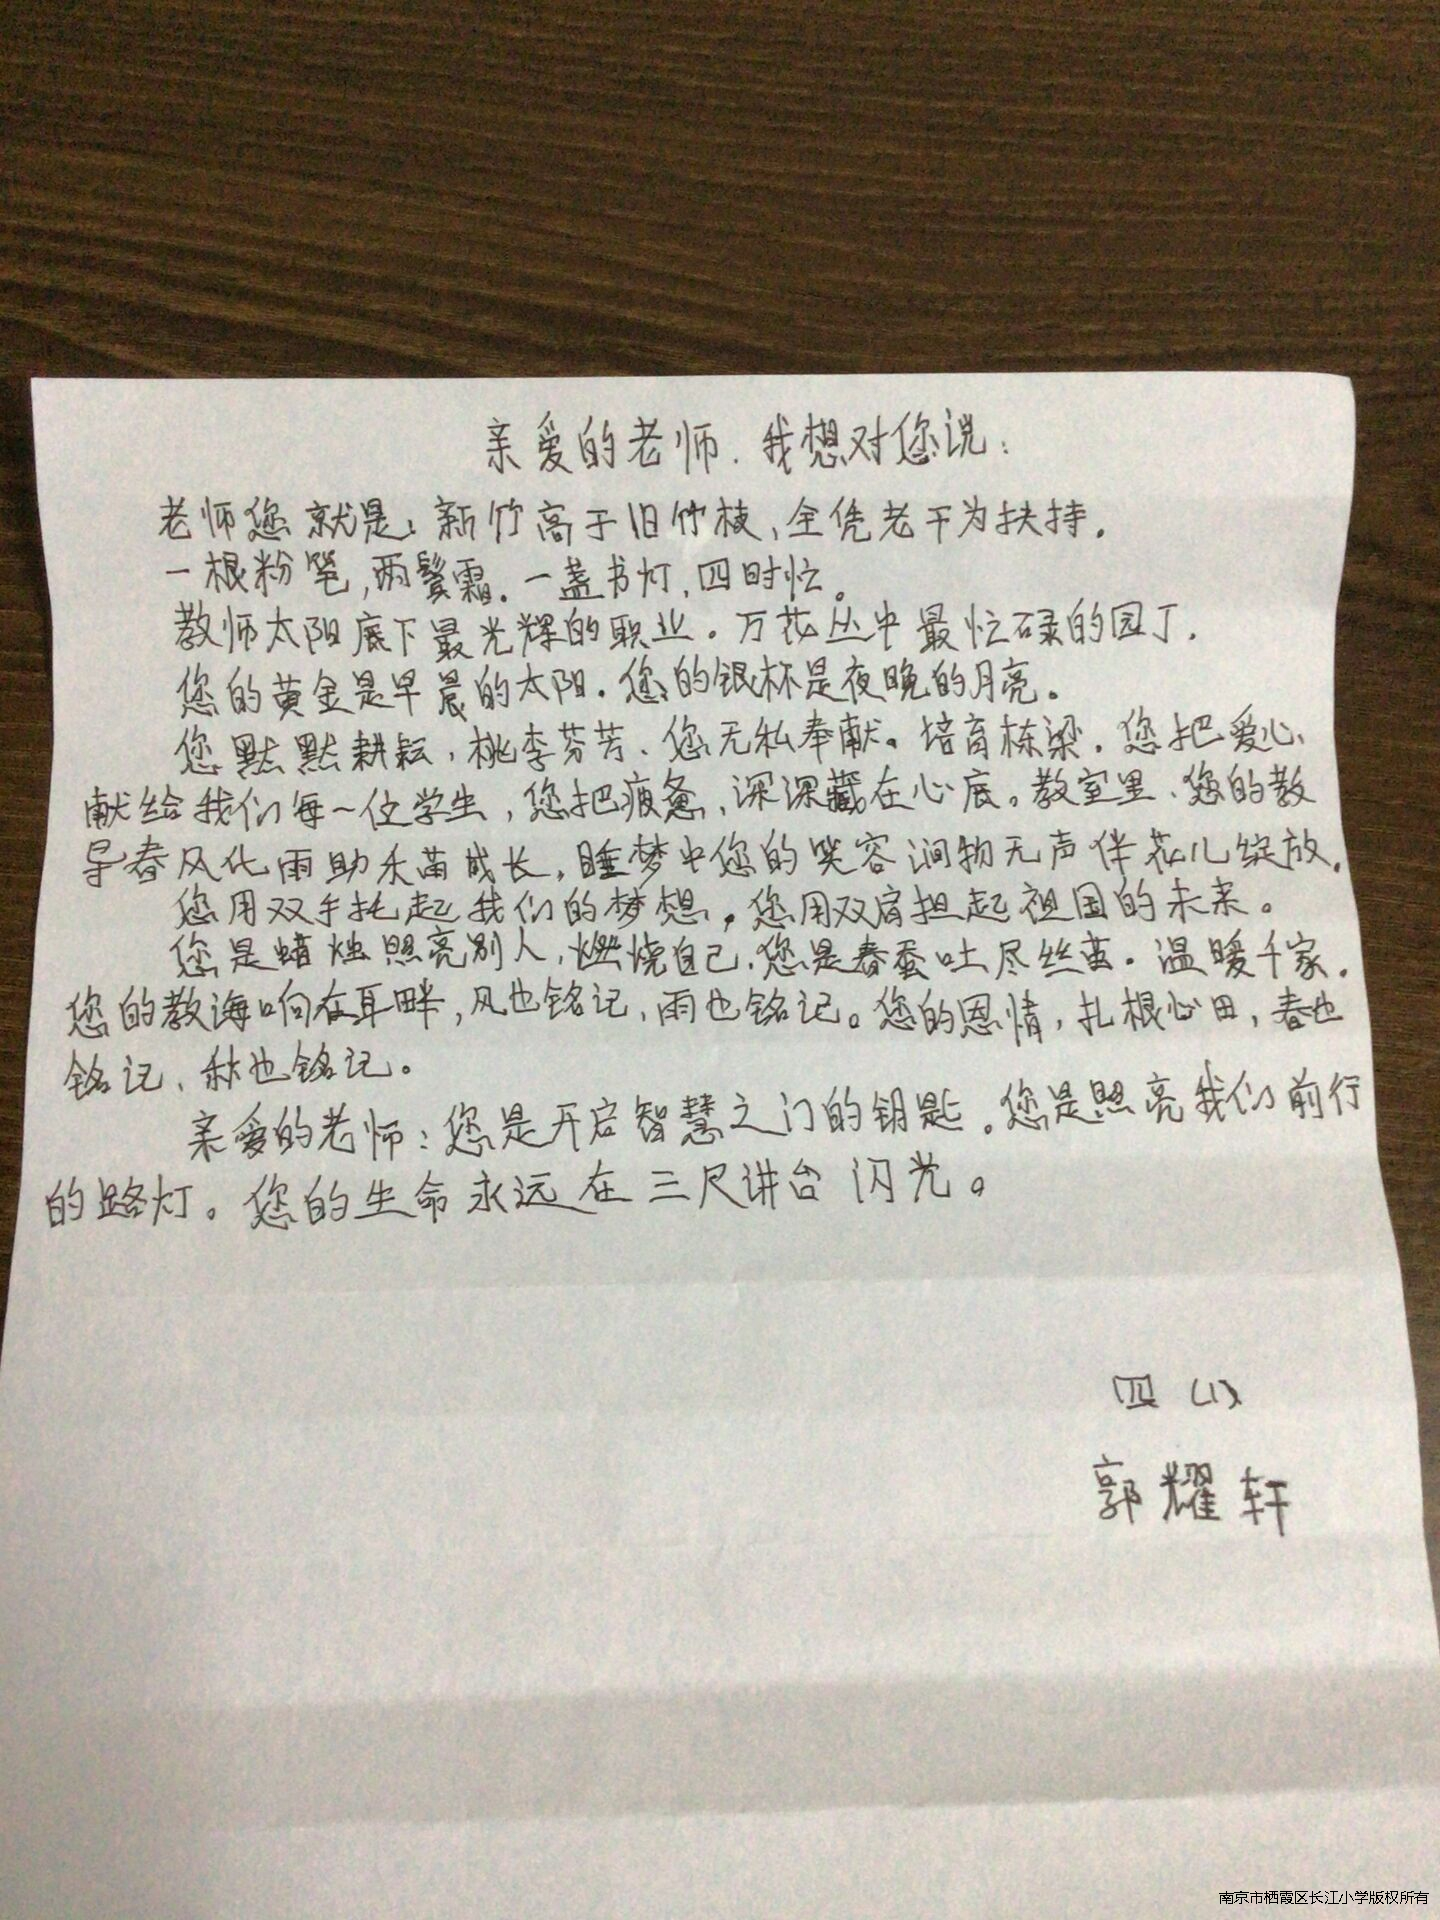 亲爱的老师.我想对您说:
老师您就是:新竹高于旧竹枝,全凭老干为扶持.
一根粉笔,两鬓霜.一盏书灯,四时忙。
教师太阳底下最光辉的职业.万花丛中最忙碌的园丁.
您的黄金是早晨的太阳.您的银杯是夜晚的月亮。
您默默耕耘,桃李芬芳、您无私奉献。培育栋梁.您把爱心
献给我们每一位学生,您把疲惫,深深藏在心底。教室里、您的教
导春风化雨助禾苗成长,睡梦中您的笑容润物无声伴花儿绽放.
您用双手托起我们的梦想.您用双肩担起祖国的未来。
您是蜡烛照亮别人,燃烧自己.您是春蚕吐尽丝茧.温暖千家.
您的教诲响在耳畔,风也铭记,雨也铭记。您的恩情,扎根心田,春也
铭记、秋也铭记。
亲爱的老师:您是开启智慧之门的钥匙.您是照亮我们前行
的路灯。您的生命永远在三尺讲台闪光。
四(1)
郭耀轩
南京市栖霞区长江小学版权所有